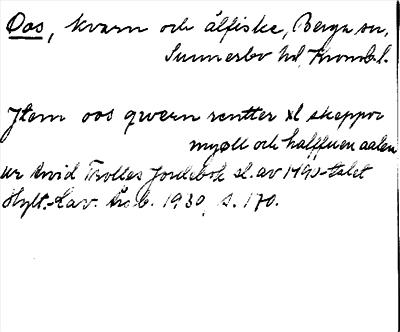 Oos, kvarn och ålfiske, Berga sn,
Sunnerbo hd, Kronob. l.
Jtem oos qwern rentter xl skeppor
myøll och halffuen aalen
ur Arvid Trolles Jordebok sl. av 1490-talet
Hylt.-Cav. Årsb. 1930, s. 170.